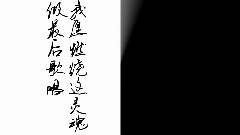 我愿燃烧这灵魂
做最后歌唱